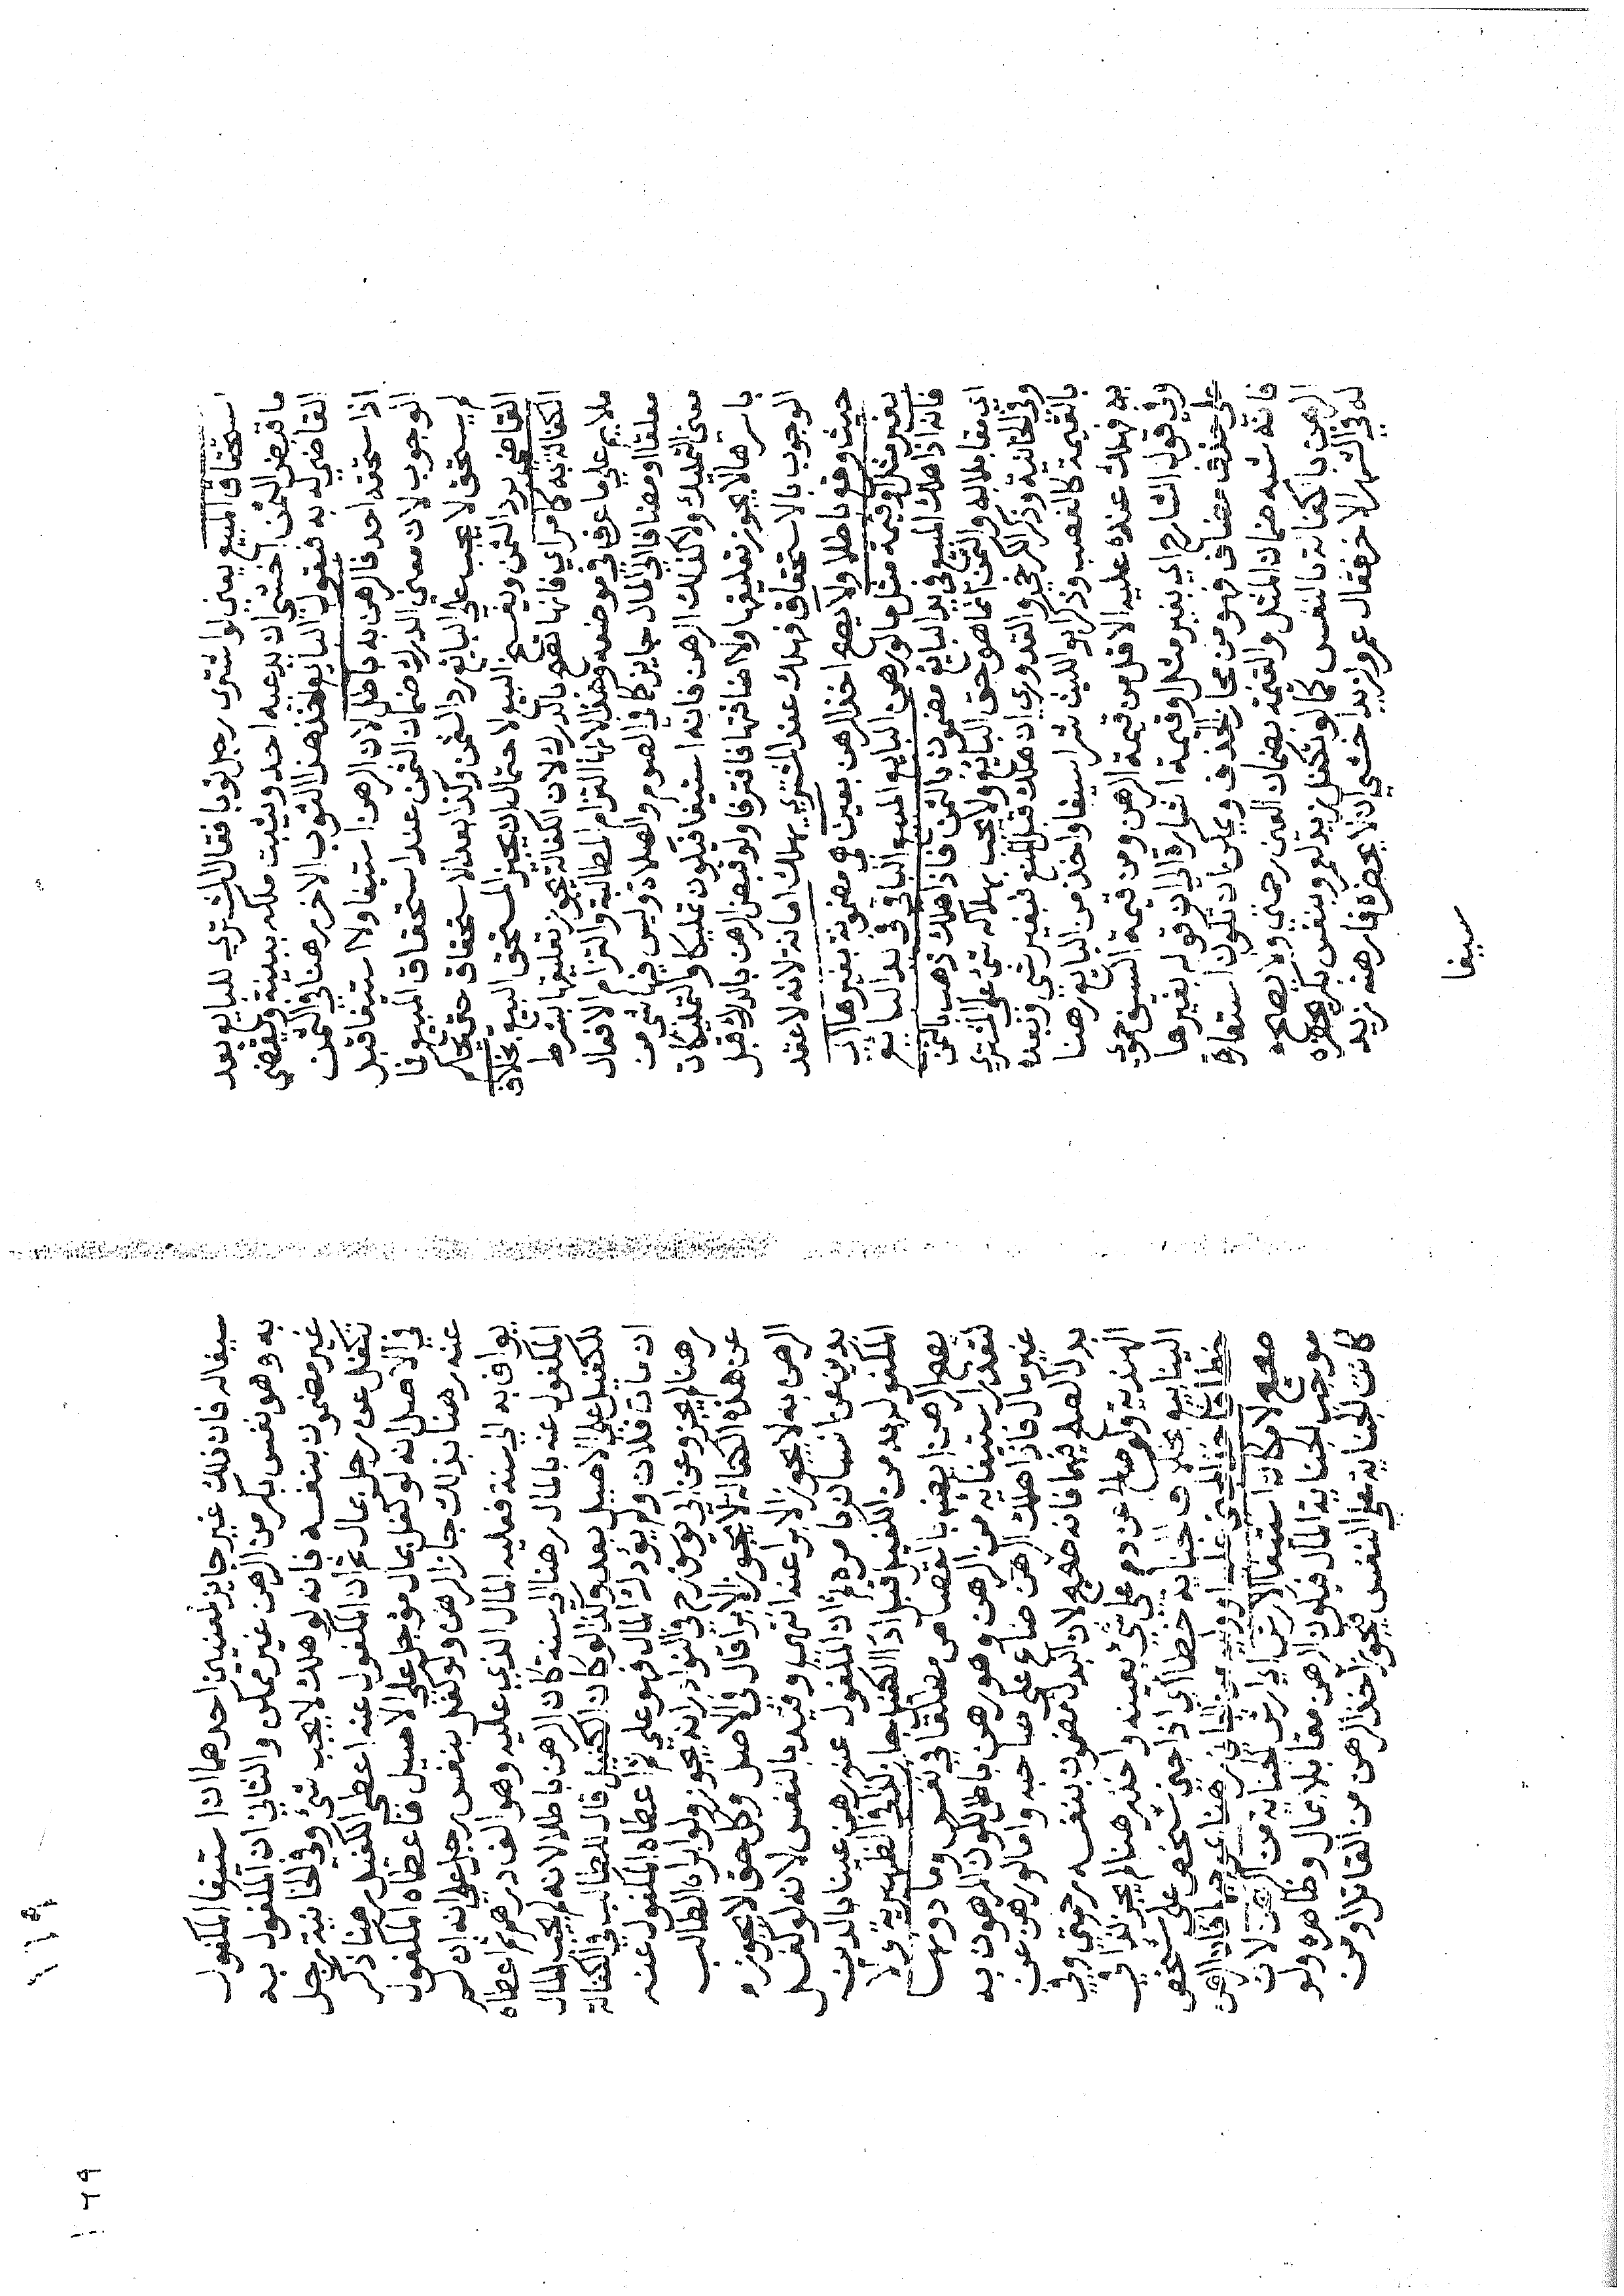 استحقاق المبيع يعني لو اشترى رجل ثوبا فقال المشتري للبايع بعد
ما قبض الثمن اخشى ان يدعيه احد ويثبت ملكه ببينة ويقضي
القاضي له به فيقول البايع خذ هذا الثوب الاخر رهنا في الثمن
اذا استحقه احد فالرهن به باطل لان الرهن استيفا ولا استيفا قبل
الوجوب لان معنى الدرك ضمان الثمن عند استحقاق المبيع وما
لم يستحق لا يجب على البايع رد الثمن وكذا بعد الاستحقاق حتى يحكم
القاضي برد الثمن ويفسخ البيع لاحتمال ان يجيز المستحق البيع بخلاف
الكفالة به كما مر اي فانها تصح بالدرك لان الكفالة يجوز تعليقها بشرط
ملايم على ما عرف في موضعه وهذا لانها التزام المطالبة والتزام الافعال
معلقا او مضافا الى المال جايز كما في الصوم والصلاة وليس فيها شي من
معنى التمليك ولا كذلك الرهن فانه استيفا فيكون تمليكا والتمليكات
باسرها لا يجوز تعليقها ولا اضافتها فافترقا ولو قبض الرهن بالدرك قبل
الوجوب بالاستحقاق فهلك عند المشتري يهلك امانة لانه لا عقد
حيث وقع باطلا ولا يصح اخذ الرهن بعين مضمونة بغيرها اي
بغير مثل او قيمة مثل ما لو رهن البايع المبيع الباقي في يد البايع
فانه اذا هلك المبيع في يد البايع مضمون بالثمن فاذا هلك ذهب بالثمن
اي مقابلا به والثمن انما هو حق البايع ولا يجب بهلاكه شي على المشتري
وفي الخانية وذكر الكرخي والقدوري ان هلك قبل المنع فبغير شي وبعده
بالقيمة كالغصب وذكر ابو الليث شرا سيفا واخذ من البايع رهنا
به فهلك عنده عليه الاقل من قيمة الرهن ومن قيمة السيف حموي
وفي قول الشارح اي بغير مثل او قيمة اشارة الى ان قوله بغيرها
على حذف مضاف فهو من مجاز الحذف ويمكن ان تكون استعارة
فانه شبه ضمان المثل والقيمة بضمان العين رحمتي ولا يصح
الرهن بالكفالة بالنفس كما لو تكفل زيد لعمرو بنفس بكر يحضره
له في الشهر الاخر فقال عمرو لزيد اخشى ان لا يحضره فارهنه زيد
سيفا
سيفا له فان ذلك غير جايز لمعنيين احدهما ان استيفا المكفول
به وهو نفس بكر من الرهن غير ممكن والثاني ان المكفول به
غير مضمون بنفسه فانه لو هلك لا يجب شي وفي الخانية رجل
تكفل عن رجل بمال ثم ان المكفول عنه اعطى الكفيل رهنا ذكر
في الاصل انه لو كفل بمال مؤجل على الاصيل فاعطاه المكفول
عنه رهنا بذلك جاز الرهن ولو كفل بنفس رجل على انه ان لم
يواف به الى سنة فعليه المال الذي عليه وهو الف درهم ثم اعطاه
المكفول عنه بالمال رهنا الى سنة كان الرهن باطلا لانه لم يجب المال
للكفيل على الاصيل بعد وكذا لو كان الكفيل قال للطالب في الكفالة
ان مات فلان ولم يؤدك المال فهو علي ثم اعطاه المكفول عنه
رهنا لم يجز وعن ابي يوسف رح في النوادر انه يجوز ولو ابرا الطالب
عن هذه الكفالة لا يجوز الابرا قال في الاصل وكل حق لا يجوز
الرهن به لا يجوز الابرا عنه انتهى وقيد بالنفس لانه لو كفل
بدين عن انسان بامره ثم ان المكفول عنه رهن عينا بالدين
المكفول به من الكفيل قبل اداء الكفيل جاز كذا في الظهيرية ولا
يصح الرهن ايضا بالقصاص مطلقا في نفس وما دونها
لتعذر استيفايه من الرهن وهو رهن باطل لكون المرهون به
غير مال فاذا هلك الرهن ضاع على صاحبه واما لو رهن عن
بدل الصلح فيهما فانه صحيح لان البدل مضمون بنفسه رحمتي وفي
الهندية ولو صالح عن دم على شي بعينه واخذ رهنا لم يجز كذا في
الينابيع بخلاف الجناية خطأ اي اذا جنى شخص على شخص
خطأ فاخذ المجني عليه او وليه من الجاني رهنا عوضها فان الرهن
صحيح لامكان استيفا الارش اي ارش الجناية من الرهن لان
موجب الجناية المال فيكون الرهن مقابلا بمال وظاهره ولو
كانت الجناية على النفس فيجوز اخذ الرهن من القاتل او من
١٦٩